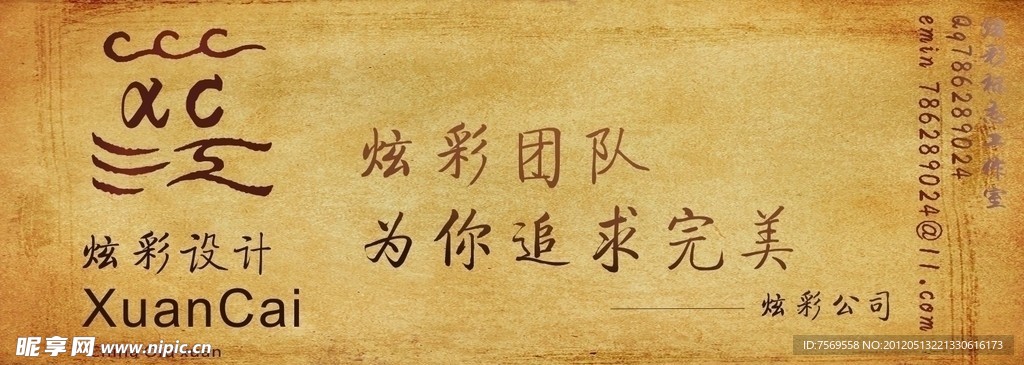 ccc
αc
炫彩设计
XuanCai
炫彩团队
为你追求完美
炫彩公司
炫彩标志工作室
Qq786289024
emin 786289024@11.com
昵享网 www.nipic.cn
ID:7569558 NO:20120513221330616173